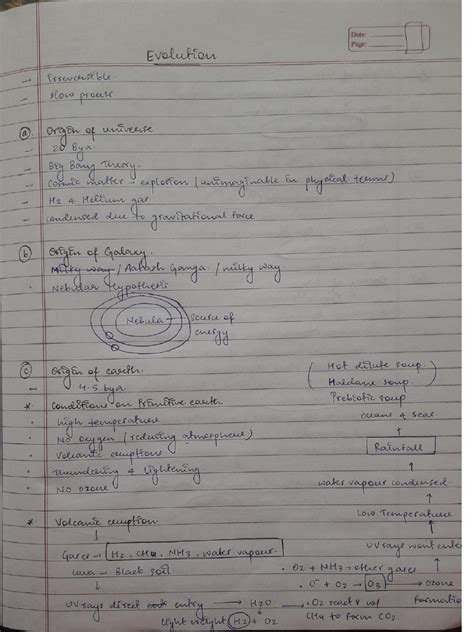 Date:
Page:
Evolution
→ Irreversible.
→ slow process
(a) Origin of universe
- 20 Bya.
- Big Bang Theory.
- Cosmic matter - explosion (unimaginable in physical terms)
- H2 & Helium gas
- condensed due to gravitational force
(b) Origin of Galaxy.
Milky way / Aakash Ganga / milky way
• Nebular Hypothesis
Nebula → source of energy
(c) Origin of earth.
— 4.5 bya.
* Conditions on primitive earth
• high temperature
• No oxygen (reducing atmosphere)
• Volcanic eruptions
• Thundering & Lightening
• No ozone
(Hot dilute soup.
Haldane soup.
Prebiotic soup)
oceans & seas.
↑
Rainfall
↑
water vapour condensed.
↑
Low Temperature
↑
UV rays wont enter
↑
* Volcanic eruption
↓
Gases → H2, CH4, NH3, water vapour.
Lava - Black soil
↓
UV rays direct entry → H2O
↓
light weight (H2) + O2
• O2 + NH3, other gases
• O⁻ + O2 → O3 → ozone formation
• O2 reacts w/ CH4 to form CO2